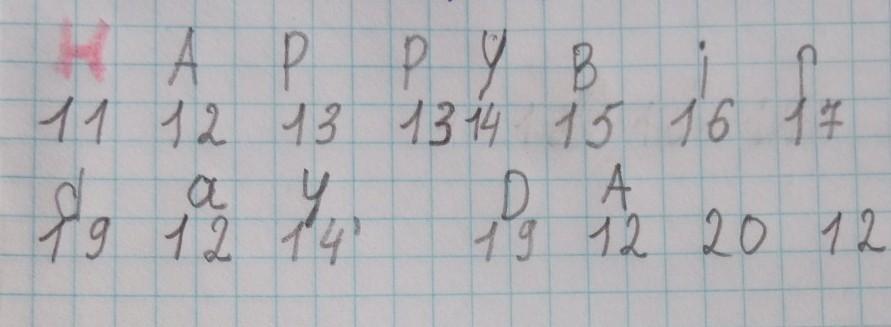 H A P P Y B i r
11 12 13 13 14 15 16 17
d a y D A
19 12 14 19 12 20 12